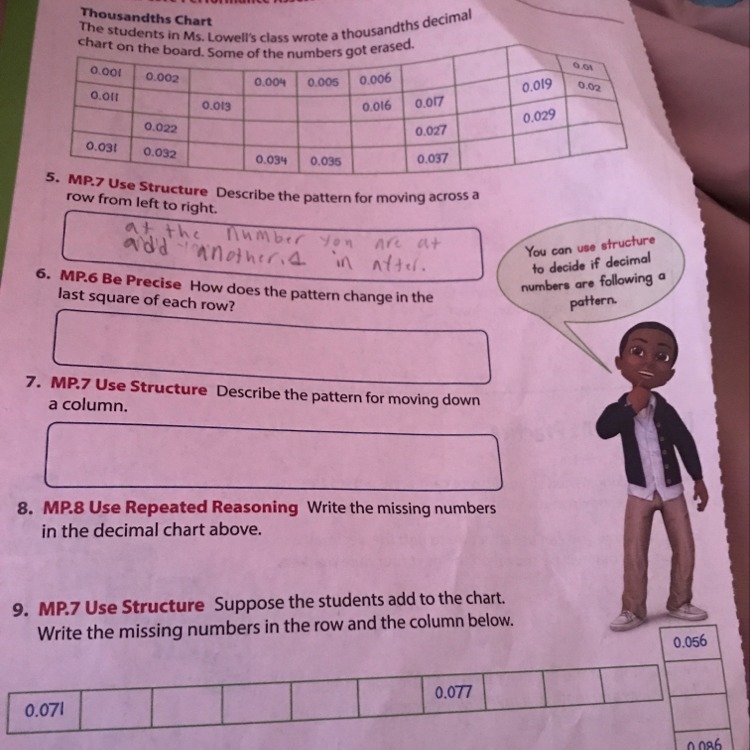 Thousandths Chart
The students in Ms. Lowell's class wrote a thousandths decimal
chart on the board. Some of the numbers got erased.
0.001 0.002 0.004 0.005 0.006 0.01
0.011 0.013 0.016 0.017 0.019 0.02
0.022 0.027 0.029
0.031 0.032 0.034 0.035 0.037
5. MP.7 Use Structure Describe the pattern for moving across a
row from left to right.
at the number you are at
add another in after.
6. MP.6 Be Precise How does the pattern change in the
last square of each row?
You can use structure
to decide if decimal
numbers are following a
pattern.
7. MP.7 Use Structure Describe the pattern for moving down
a column.
8. MP.8 Use Repeated Reasoning Write the missing numbers
in the decimal chart above.
9. MP.7 Use Structure Suppose the students add to the chart.
Write the missing numbers in the row and the column below.
0.071 0.077
0.056
0.086